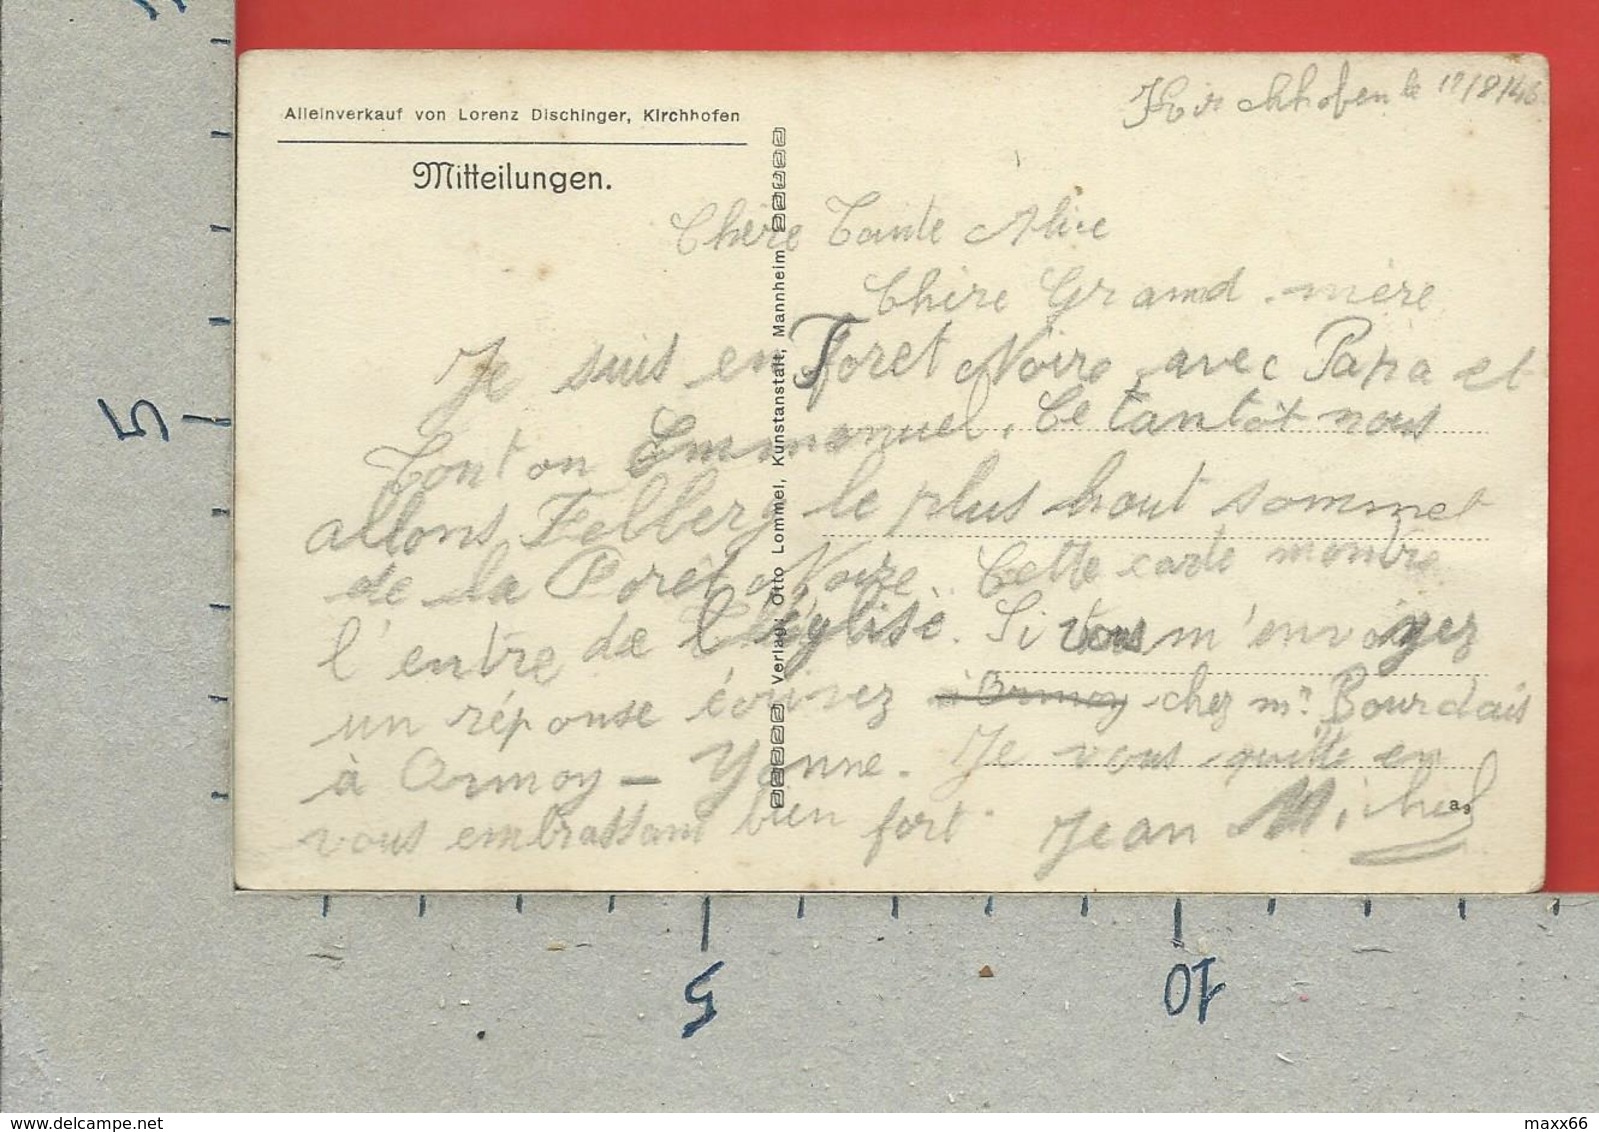 Alleinverkauf von Lorenz Dischinger, Kirchhofen
Mitteilungen.
Verlag: Otto Lommel, Kunstanstalt, Mannheim
Kirchhofen le 12/8/46
Chère Tante Alice
Chère Grand-mère
Je suis en Foret Noire avec Papa et
Tonton Emmanuel. Ce tantôt nous
allons Felberg le plus haut sommet
de la Forêt Noire. Cette carte montre
l'entre de l'église. Si vous m'envoiyez
un réponse écrivez à Ormoy chez mr Bourdais
à Ormoy — Yonne. Je vous quitte en
vous embrassant bien fort. Jean Michel
a9
5
5
10
delcampe.net
maxx66